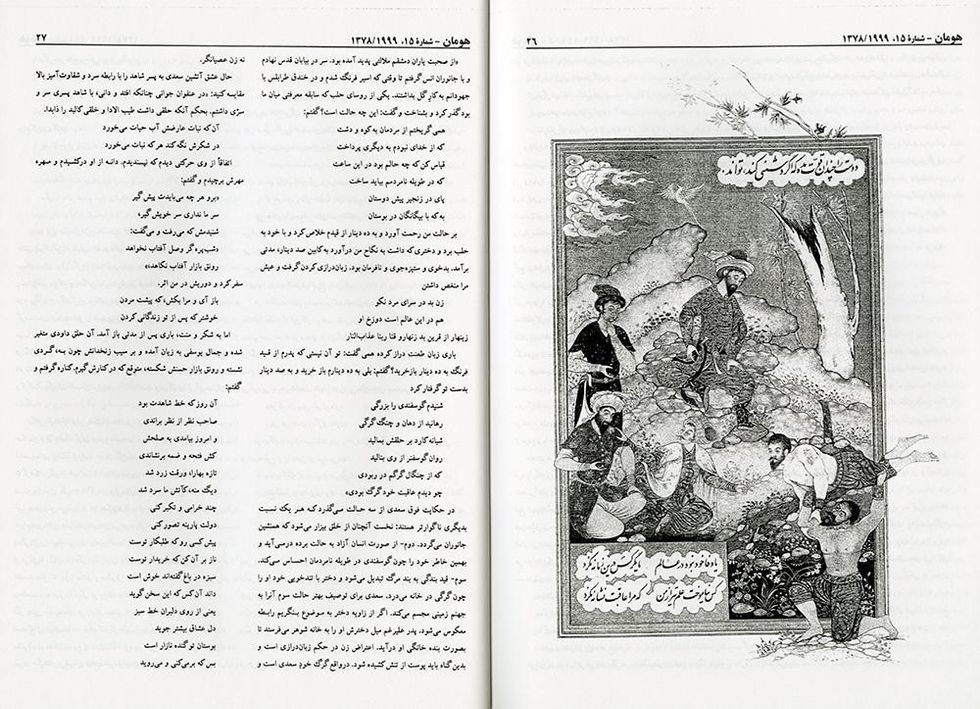 هومان - شمارهٔ ۱۵، ۱۳۷۸/۱۹۹۹
۲۶
دوست را چندان قوت مده که اگر دشمنی کند، تواند.
یا وفا خود نبود در عالم
یا مگر کس درین زمانه نکرد
کس نیاموخت علم تیر از من
که مرا عاقبت نشانه نکرد
هومان - شمارهٔ ۱۵، ۱۳۷۸/۱۹۹۹
۲۷
«از صحبت یاران دمشقم ملالتی پدید آمده بود. سر در بیابان قدس نهادم
و با جانوران انس گرفتم تا وقتی که اسیر فرنگ شدم و در خندق طرابلس با
جهودانم به کار گل بداشتند. یکی از روسای حلب که سابقه معرفتی میان ما
بود گذر کرد و بشناخت و گفت: این چه حالت است؟ گفتم:
همی گریختم از مردمان به کوه و دشت
که از خدای نبودم به دیگری پرداخت
قیاس کن که چه حالم بود در این ساعت
که در طویله نامردمم بباید ساخت
پای در زنجیر پیش دوستان
به که با بیگانگان در بوستان
بر حالت من رحمت آورد و به ده دینار از قیدم خلاص کرد و با خود به
حلب برد و دختری که داشت به نکاح من درآورد به کابین صد دینار، مدتی
برآمد. بدخوی و ستیزه‌جوی و نافرمان بود. زبان‌درازی کردن گرفت و عیش
مرا منغص داشتن
زن بد در سرای مرد نکو
هم در این عالم است دوزخ او
زینهار از قرین بد زنهار و قنا ربنا عذاب‌النار
باری زبان طعنت دراز کرده همی گفت: تو آن نیستی که پدرم از قید
فرنگ به ده دینار بازخرید؟ گفتم: بلی به ده دینارم باز خرید و به صد دینار
بدست تو گرفتار کرد
شنیدم گوسفندی را بزرگی
رهانید از دهان و چنگ گرگی
شبانه کارد بر حلقش بمالید
روان گوسفند از وی بنالید
که از چنگال گرگم در ربودی
چو دیدم عاقبت خود گرگ بودی»
در حکایت فوق سعدی از سه حالت می‌گذرد که هر یک نسبت
بدیگری ناگوارتر هستند: نخست آنچنان از خلق بیزار می‌شود که همنشین
جانوران می‌گردد. دوم- از صورت انسان آزاد به حالت برده درمی‌آید و
بهمین خاطر خود را چون گوسفندی در طویله نامردمان احساس می‌کند.
سوم- قید بندگی به بند مرگ تبدیل می‌شود و دختر با تندخویی خود او را
چون گرگی در خانه می‌درد. سعدی برای توصیف بهتر حالت سوم آنرا به
جهنم زمینی مجسم می‌کند. اگر از زاویه دختر به موضوع بنگریم رابطه
معکوس می‌شود. پدر علیرغم میل دخترش او را به خانه شوهر می‌فرستد تا
بصورت بنده خانگی او درآید. اعتراض زن در حکم زبان‌درازی است و
بدین گناه باید پوست از تنش کشیده شود. درواقع گرگ خودِ سعدی است و
نه زن عصیانگر.
حال عشق آتشین سعدی به پسر شاهد را با رابطه سرد و شقاوت‌آمیز بالا
مقایسه کنید: «در عنفوان جوانی چنانکه افتد و دانی، با شاهد پسری سر و
سرّی داشتم. بحکم آنکه حلقی داشت طیب الادا و خلقی کالبد را ذابدا.
آن که نبات عارضش آب حیات می‌خورد
در شکرش نگه کند هر که نبات می‌خورد
اتفاقاً از وی حرکتی دیدم که نپسندیدم. دامن از او درکشیدم و مهره
مهرش برچیدم و گفتم:
«برو هر چه می‌بایدت پیش گیر
سر ما نداری سر خویش گیر»
شنیدمش که می‌رفت و می‌گفت:
«شب‌پره گر وصل آفتاب نخواهد
رونق بازار آفتاب نکاهد.»
سفر کرد و دوریش در من اثر.
باز آی و مرا بکش، که پیشت مردن
خوشتر که پس از تو زندگانی کردن
اما به شکر و منت، باری پس از مدتی باز آمد. آن حلق داودی متغیر
شده و جمال یوسفی به زیان آمده و بر سیب زنخدانش چون به، گردی
نشسته و رونق بازار حسنش شکسته، متوقع که در کنارش گیرم. کناره گرفتم و
گفتم:
آن روز که خط شاهدت بود
صاحب نظر از نظر براندی
و امروز بیامدی به صلحش
کش فتحه و ضمه برنشاندی
تازه بهارا، ورقت زرد شد
دیگ منه، کآتش ما سرد شد
چند خرامی و تکبر کنی
دولت پارینه تصور کنی
پیش کسی رو که طلبکار توست
ناز بر آن کن که خریدار توست
سبزه در باغ گفته‌اند خوش است
داند آن کس که این سخن گوید
یعنی از روی دلبران خط سبز
دل عشاق بیشتر جوید
بوستان تو گنده نازار است
بس که برمی‌کنی و می‌روید